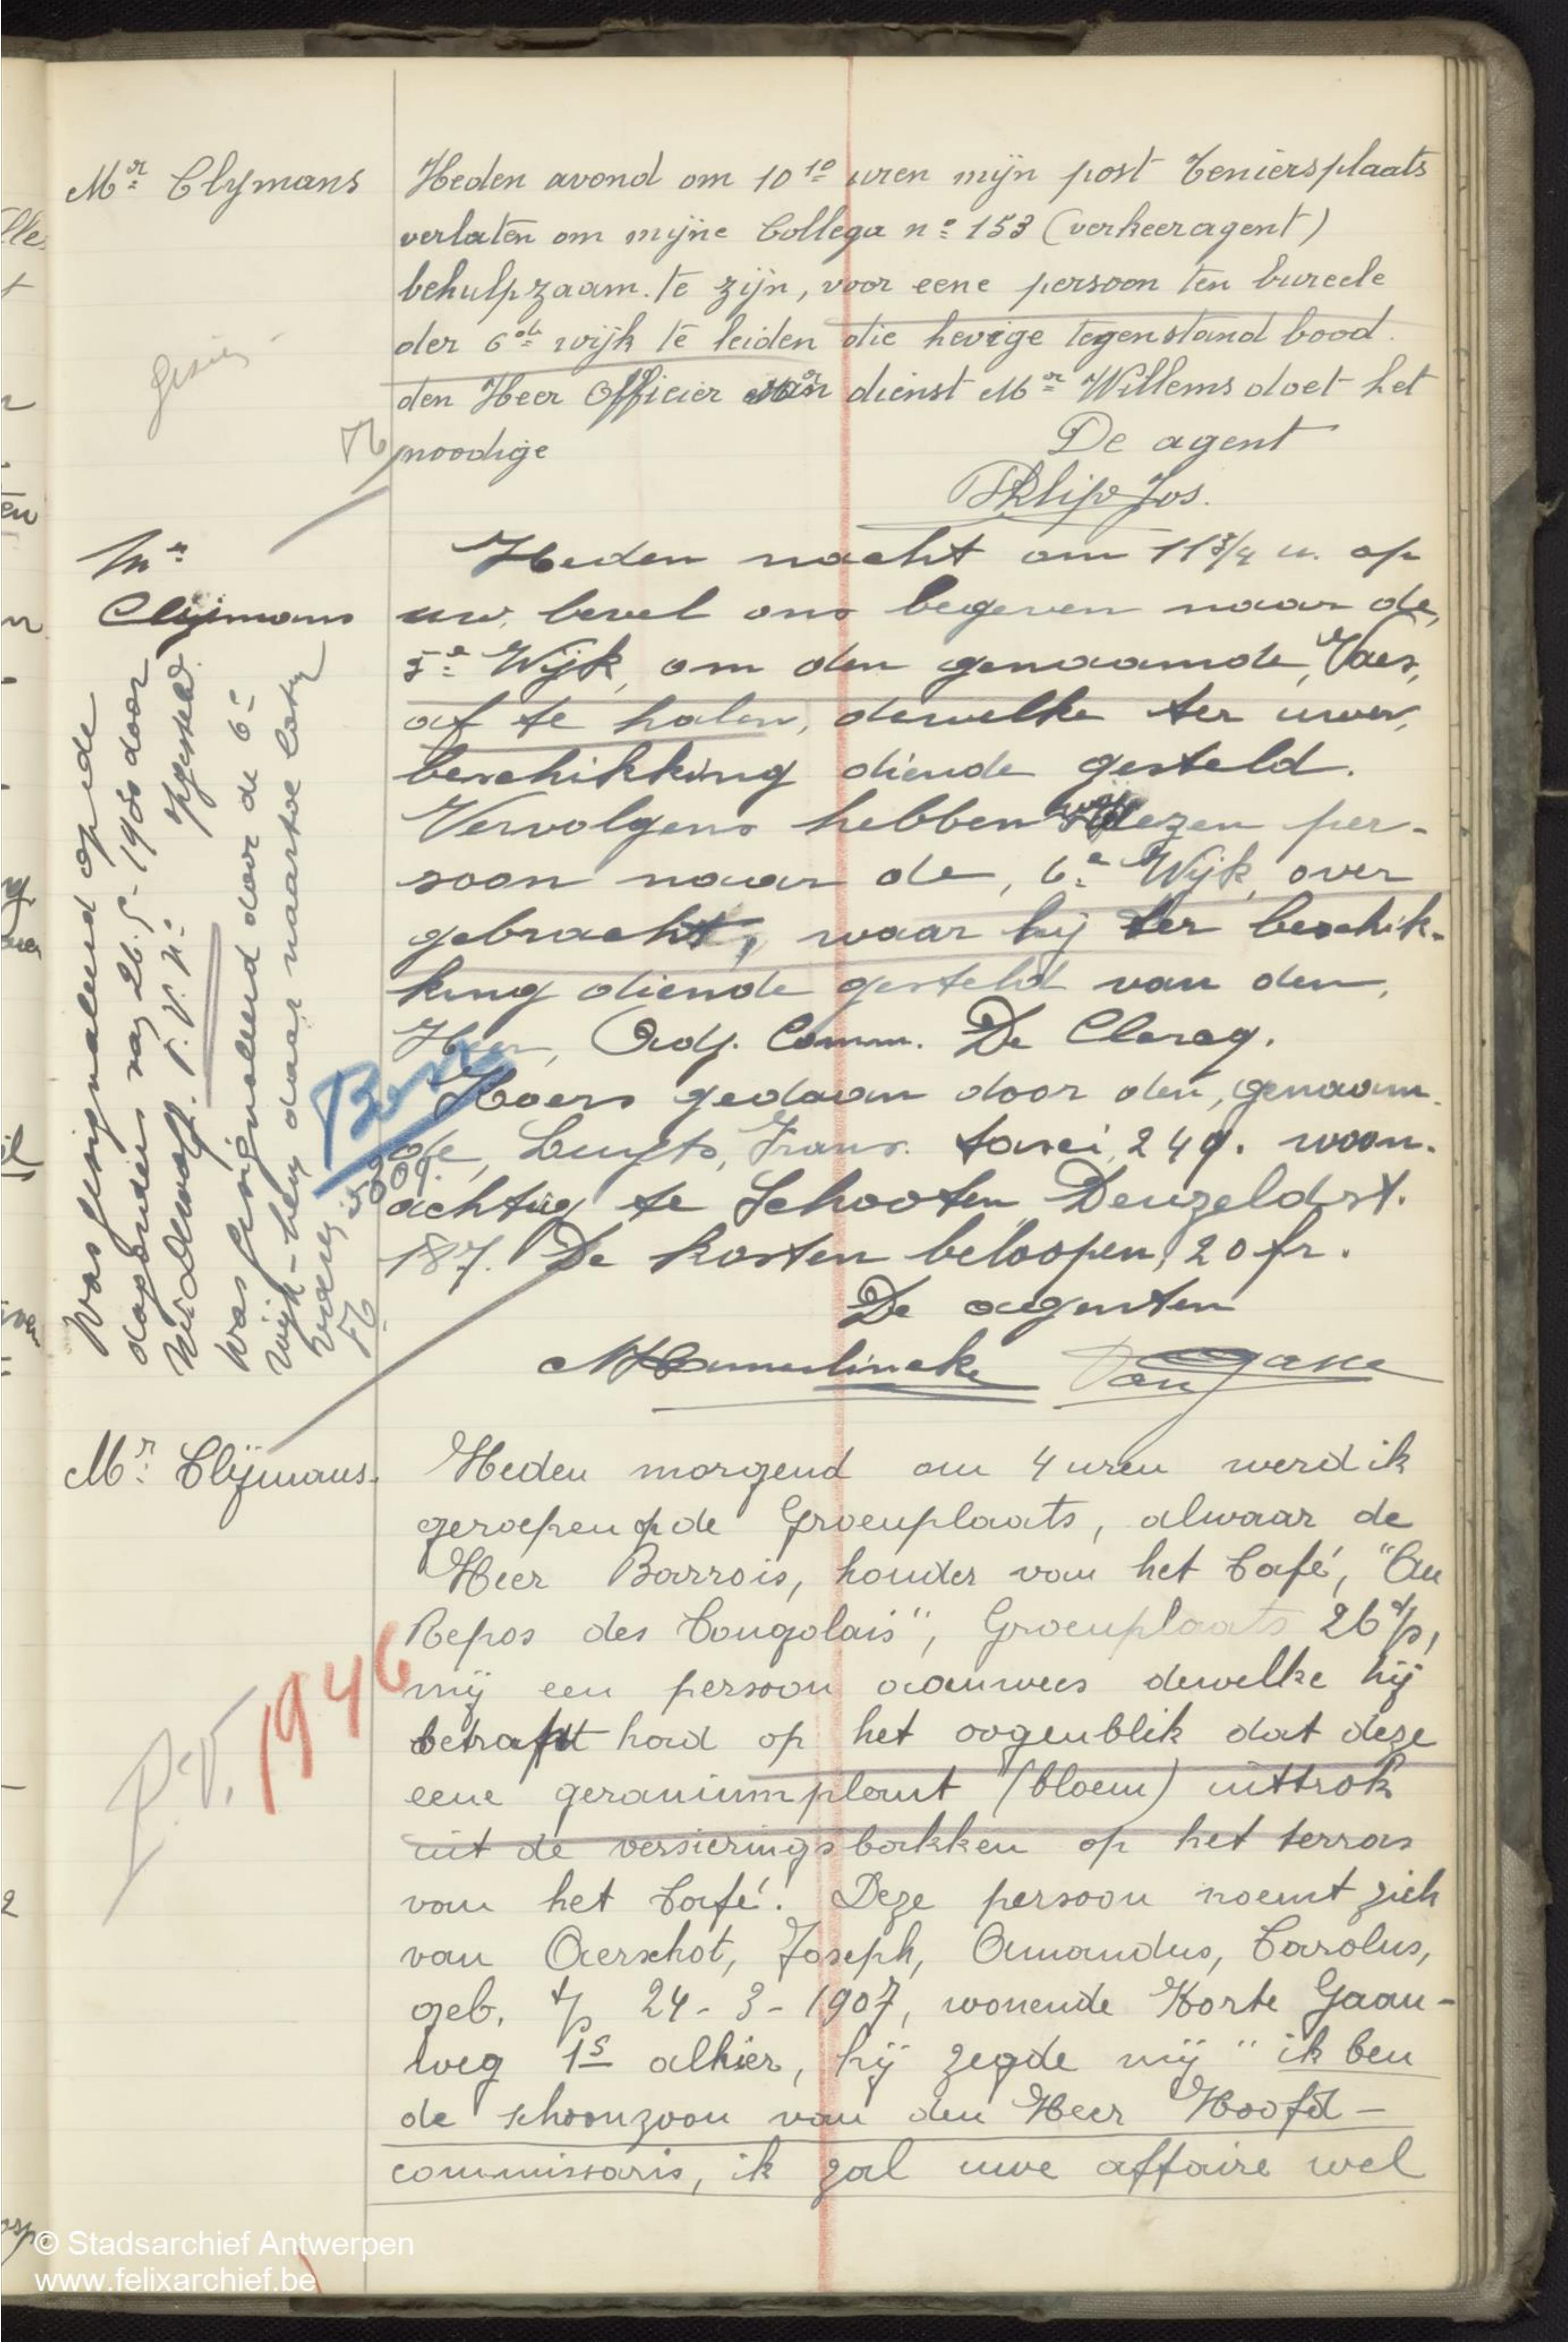 Mr Clymans
Heden avond om 10 10 uren mijn post Teniersplaats
verlaten om mijne Collega no 153 (verkeeragent)
behulpzaam te zijn, voor eene persoon ten bureele
der 6de wijk te leiden die hevige tegenstand bood.
den Heer Officier van dienst Mr Willems doet het
noodige
De agent
Philips Jos.
Gezien
Mr
Clijmans
Heden nacht om 11 3/4 u. op
uw bevel ons begeven naar de,
5e Wijk, om den genaamde, Vaes,
af te halen, dewelke ter uwer,
beschikking diende gesteld.
Vervolgens hebben wij dezen per-
soon naar de, 6e Wijk, over
gebracht, waar hij ter beschik-
king diende gesteld van den,
Heer, Adj. Comm. De Clercq.
Koers gedaan door den, genaam-
de, Luyts, Frans. taxei, 249. woon-
achtig te Schooten Deuzeldst.
187. De kosten beloopen, 20 fr.
De agenten
Van Gasse
Was gesignaleerd op de
dagorder van 26.5.19 door
opgesteld.
Was gesignaleerd door de 6e
wijk
Mr Clijmans.
Heden morgend om 4 uren werd ik
geroepen op de Groenplaats, alwaar de
Heer Barrois, houder van het Café, "Au
Repos des Congolais", Groenplaats 26 d/p,
mij een persoon aanwees dewelke hij
betrapt had op het oogenblik dat deze
eene geraniumplant (bloem) uittrok
uit de versieringsbakken op het terras
van het Café. Deze persoon noemt zich
van Aerschot, Joseph, Amandus, Carolus,
geb. t/p 24-3-1907, wonende Korte Gaan-
weg 15 alhier, hij zegde mij "ik ben
de schoonzoon van den Heer Hoofd-
commissaris, ik zal uwe affaire wel
P.V. 1946
© Stadsarchief Antwerpen
www.felixarchief.be